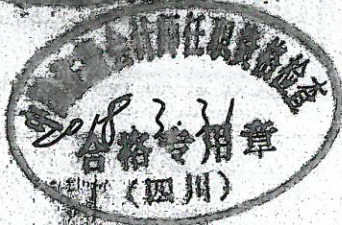 会计师任职资格检查
2018 3.31
合格专用章
（四川）